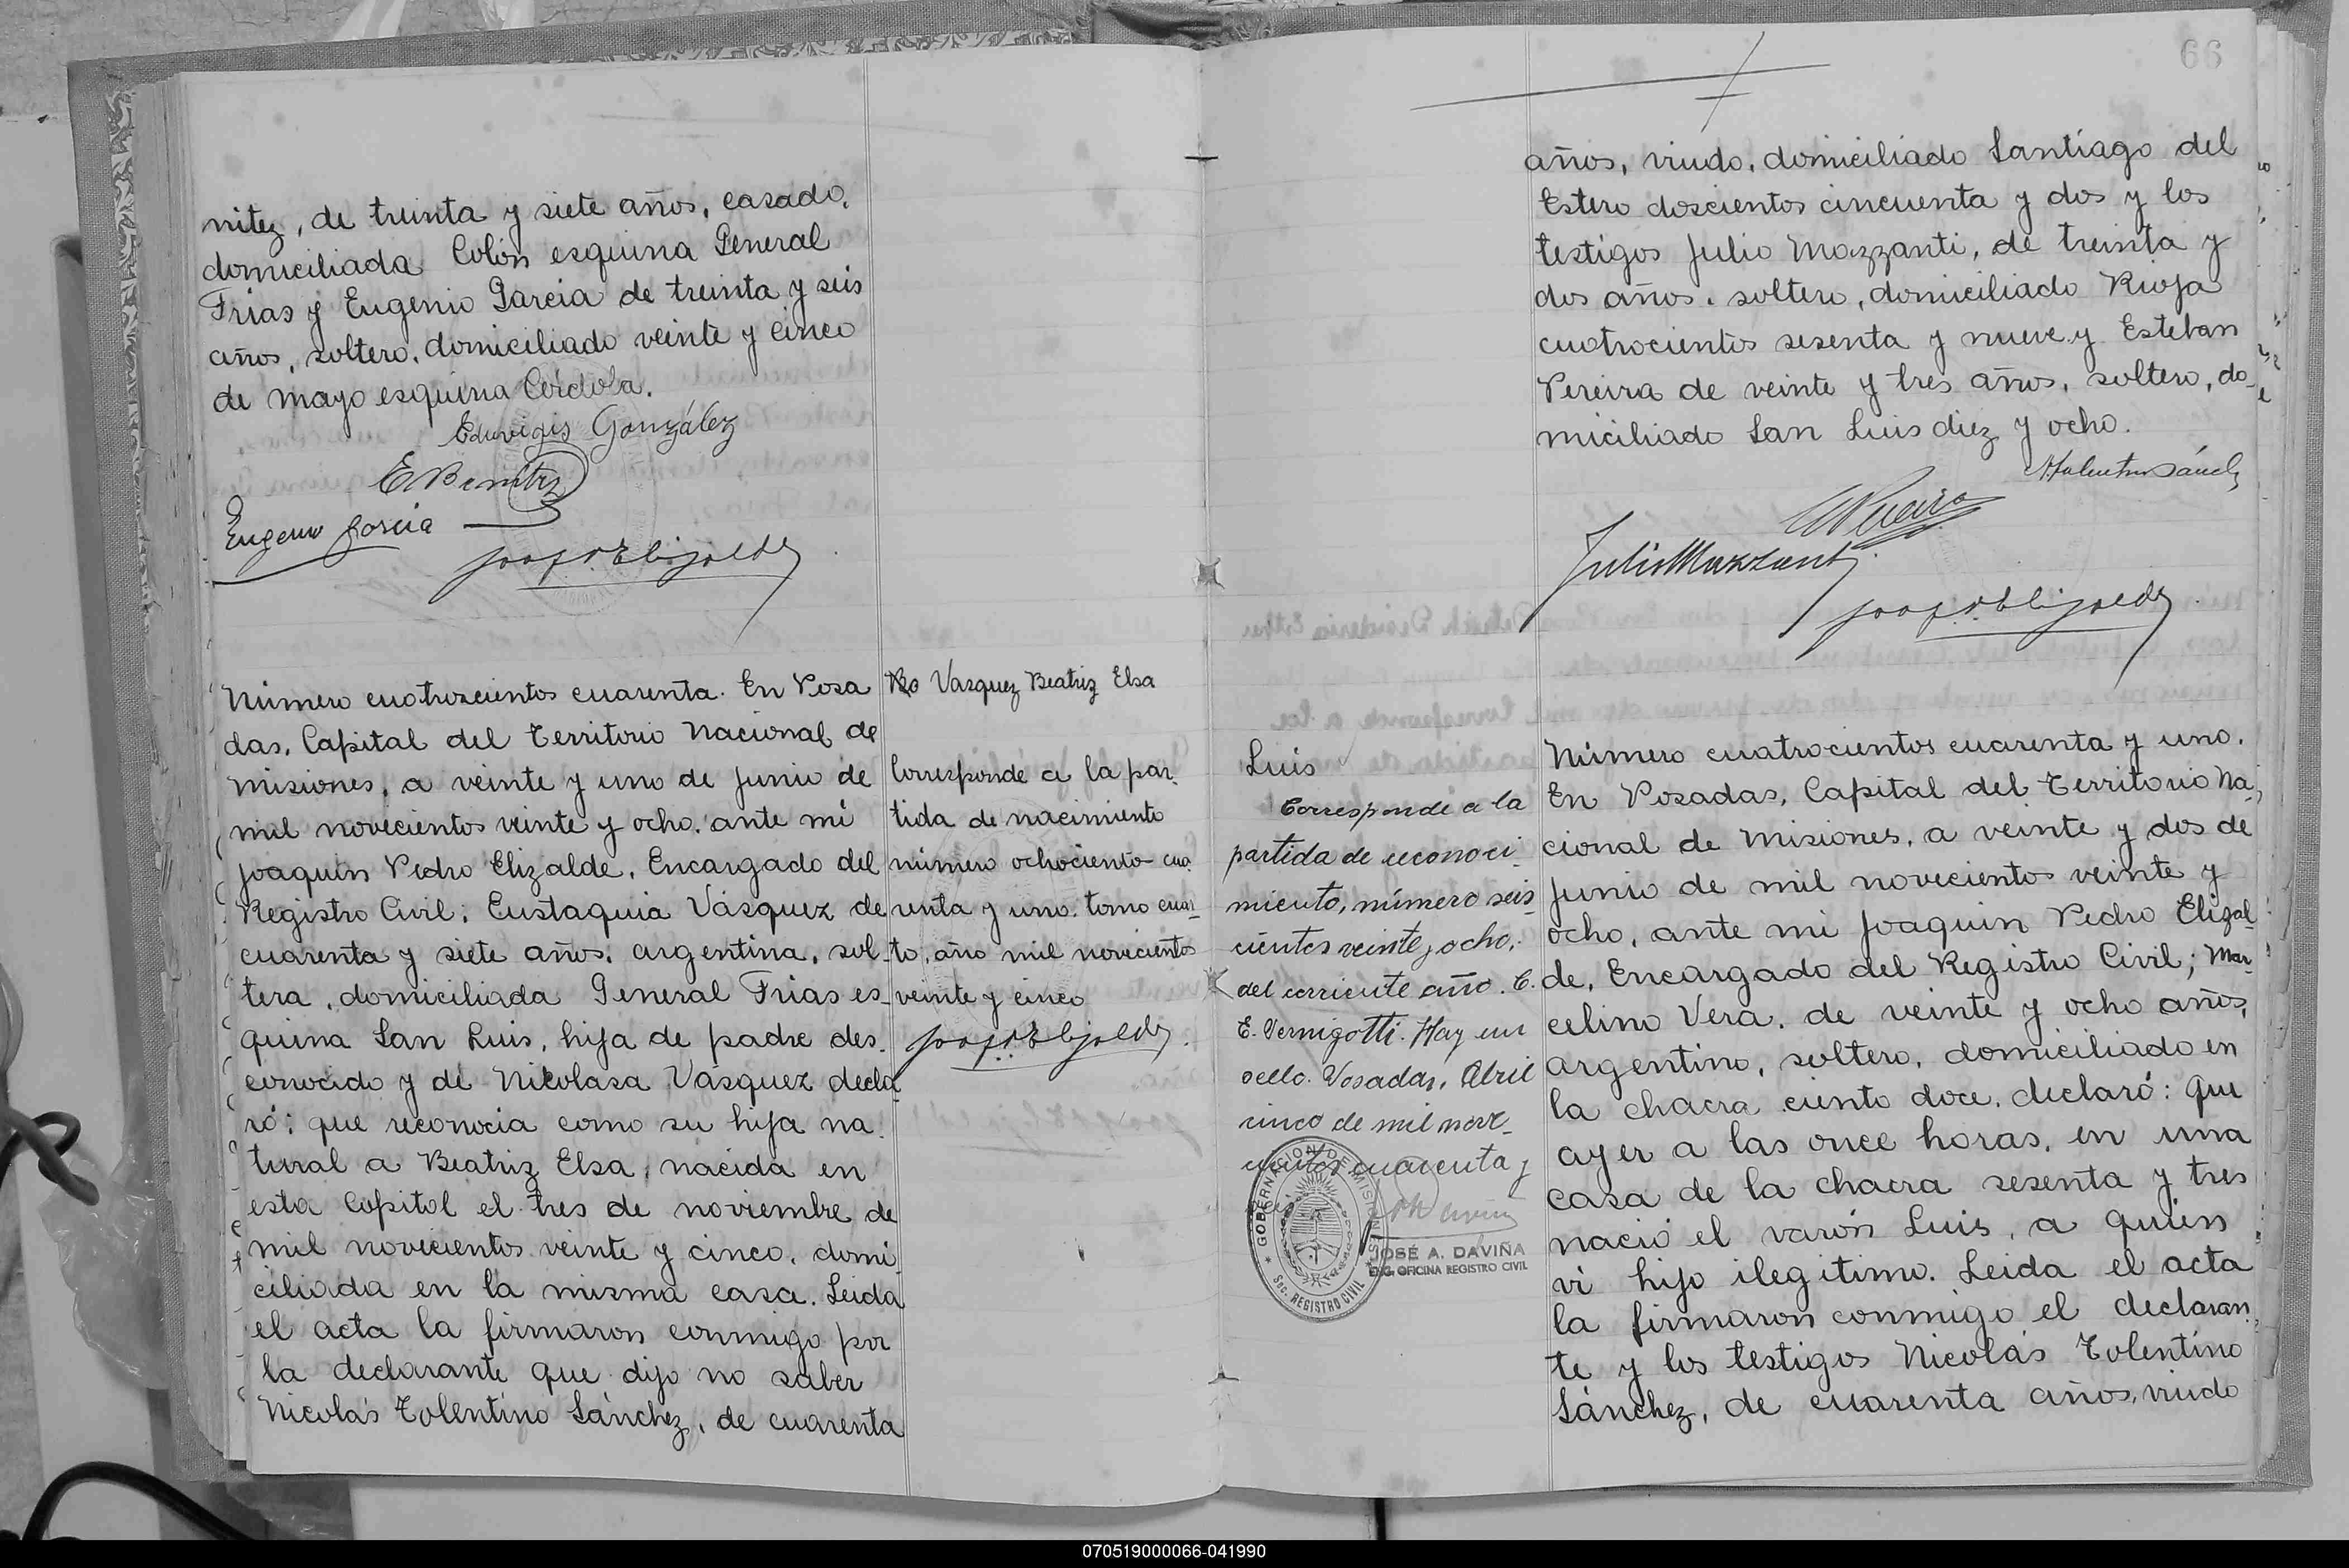 nitez, de treinta y siete años, casado,
domiciliada Colón esquina General
Frias y Eugenio Garcia de treinta y seis
años, soltero, domiciliado veinte y cinco
de mayo esquina Córdoba.
Eduvigis González
E Benitez
Eugenio Garcia
Número cuatrocientos cuarenta. En Posa
das, Capital del Territorio Nacional de
Misiones, a veinte y uno de Junio de
mil novecientos veinte y ocho, ante mi
Joaquin Pedro Elizalde, Encargado del
Registro Civil; Eustaquia Vásquez de
cuarenta y siete años, argentina, sol-
tera, domiciliada General Frias es-
quina San Luis, hija de padre des-
conocido y de Nikolasa Vásquez decla
ró: que reconocia como su hija na-
tural a Beatriz Elsa, nacida en
esta Capital el tres de noviembre de
mil novecientos veinte y cinco, domi-
ciliada en la misma casa. Leida
el acta la firmaron conmigo por
la declarante que dijo no saber
Nicolás Tolentino Sánchez, de cuarenta
Vasquez Beatriz Elsa
Corresponde a la par-
tida de nacimiento
número ochociento cua-
renta y uno. tomo cuar-
to, año mil novecientos
veinte y cinco
66
años, viudo, domiciliado Santiago del
Estero doscientos cincuenta y dos y los
testigos Julio Mazzanti, de treinta y
dos años, soltero, domiciliado Rioja
cuatrocientos sesenta y nueve y Esteban
Pereira de veinte y tres años, soltero, do-
miciliado San Luis diez y ocho.
Julio Mazzanti
Luis
Corresponde a la
partida de reconoci-
miento, número seis-
cientos veinte y ocho,
del corriente año. C.
E. Vernigotti. Hay un
sello. Posadas, Abril
cinco de mil nove-
cientos cuarenta y
GOBERNACION DE MISIONES
SEC. REGISTRO CIVIL
JOSÉ A. DAVIÑA
ENC. OFICINA REGISTRO CIVIL
Número cuatrocientos cuarenta y uno.
En Posadas, Capital del Territorio Na-
cional de Misiones, a veinte y dos de
Junio de mil novecientos veinte y
ocho, ante mi Joaquin Pedro Elizal
de, Encargado del Registro Civil; Mar-
celino Vera, de veinte y ocho años,
argentino, soltero, domiciliado en
la chacra ciento doce, declaró: Que
ayer a las once horas, en una
casa de la chacra sesenta y tres
nació el varón Luis, a quien
vi hijo ilegitimo. Leida el acta
la firmaron conmigo el declaran-
te y los testigos Nicolás Tolentino
Sánchez, de cuarenta años, viudo
070519000066-041990